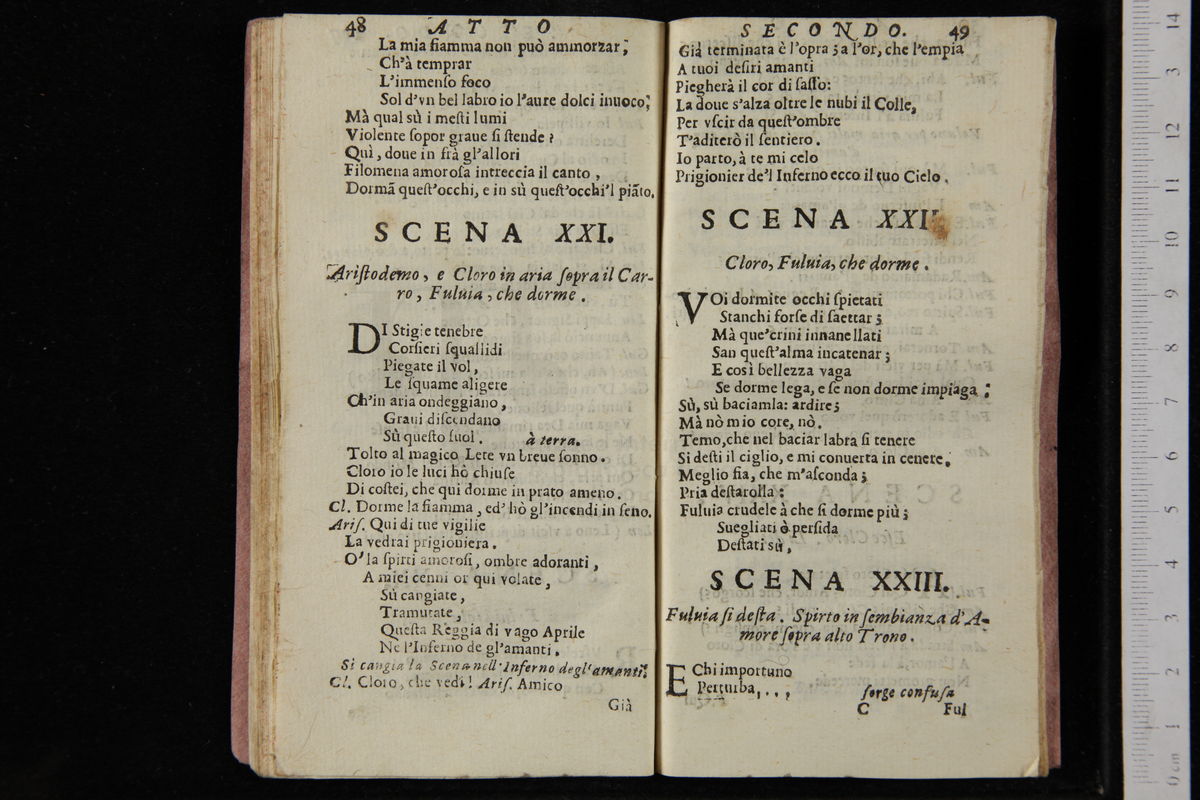 48 ATTO
La mia fiamma non può ammorzar;
Ch'à temprar
L'immenſo foco
Sol d'vn bel labro io l'aure dolci inuoco;
Mà qual sù i meſti lumi
Violente ſopor graue ſi ſtende?
Quì, doue in frà gl'allori
Filomena amoroſa intreccia il canto,
Dormã queſt'occhi, e in sù queſt'occhi'l piãto.
SCENA XXI.
Ariſtodemo, e Cloro in aria ſopra il Car-
ro, Fuluia, che dorme.
DI Stigie tenebre
Corſieri ſquallidi
Piegate il vol,
Le ſquame aligere
Ch'in aria ondeggiano,
Graui diſcendano
Sù queſto ſuol. à terra.
Tolto al magico Lete vn breue ſonno.
Cloro io le luci hò chiuſe
Di coſtei, che qui dorme in prato ameno.
Cl. Dorme la fiamma, ed' hò gl'incendi in ſeno.
Ariſ. Qui di tue vigilie
La vedrai prigioniera.
O' la ſpirti amoroſi, ombre adoranti,
A miei cenni or qui volate,
Sù cangiate,
Tramutate,
Queſta Reggia di vago Aprile
Ne l'Inferno de gl'amanti.
Si cangia la Scena nell' Inferno degl'amanti.
Cl. Cloro, che vedi! Ariſ. Amico
Già
SECONDO. 49
Già terminata è l'opra; a l'or, che l'empia
A tuoi deſiri amanti
Piegherà il cor di ſaſſo:
La doue s'alza oltre le nubi il Colle,
Per vſcir da queſt'ombre
T'aditerò il ſentiero.
Io parto, à te mi celo
Prigionier de'l Inferno ecco il tuo Cielo.
SCENA XXII
Cloro, Fuluia, che dorme.
VOi dormite occhi ſpietati
Stanchi forſe di ſaettar;
Mà que'crini innanellati
San queſt'alma incatenar;
E così bellezza vaga
Se dorme lega, e ſe non dorme impiaga;
Sù, sù baciamla: ardire;
Mà nò mio core, nò.
Temo, che nel baciar labra ſi tenere
Si deſti il ciglio, e mi conuerta in cenere.
Meglio fia, che m'aſconda;
Pria deſtarolla:
Fuluia crudele à che ſi dorme più;
Suegliati ò perfida
Deſtati sù,
SCENA XXIII.
Fuluia ſi deſta. Spirto in ſembianza d'A-
more ſopra alto Trono.
E Chi importuno
Perturba, . . , ſorge confuſa
C Ful